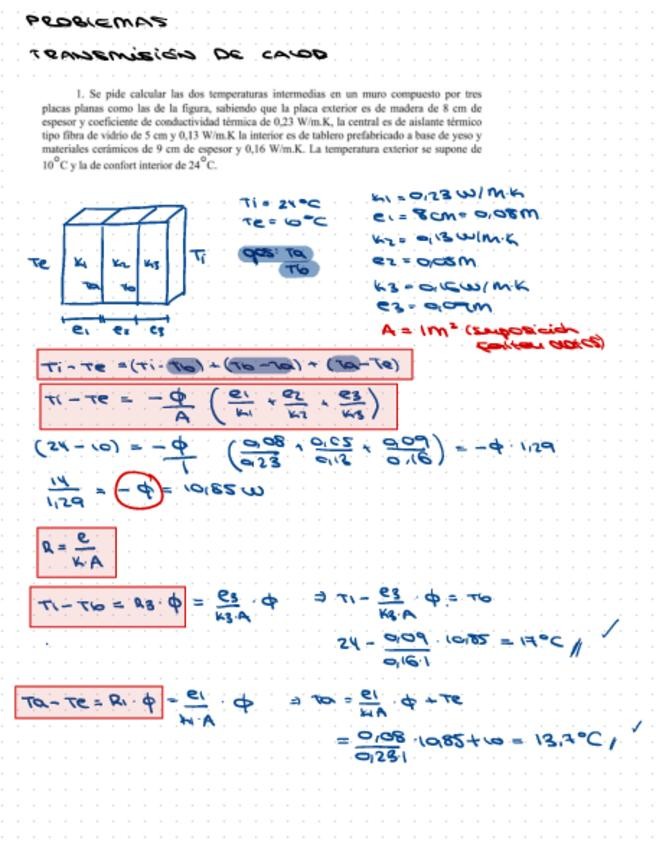 PROBLEMAS
TRANSMISIÓN DE CALOR
1. Se pide calcular las dos temperaturas intermedias en un muro compuesto por tres
placas planas como las de la figura, sabiendo que la placa exterior es de madera de 8 cm de
espesor y coeficiente de conductividad térmica de 0,23 W/m.K, la central es de aislante térmico
tipo fibra de vidrio de 5 cm y 0,13 W/m.K la interior es de tablero prefabricado a base de yeso y
materiales cerámicos de 9 cm de espesor y 0,16 W/m.K. La temperatura exterior se supone de
10°C y la de confort interior de 24°C.
Te K1 K2 K3 Ti
Ta Tb
e1 e2 e3
Ti = 24°C
Te = 10°C
¿qos: Ta
Tb
K1 = 0,23 W/m·K
e1 = 8cm = 0,08m
K2 = 0,13 W/m·K
e2 = 0,05m
K3 = 0,16 W/m·K
e3 = 0,09m
A = 1m² (suposición
Ti - Te = (Ti - Tb) + (Tb - Ta) + (Ta - Te)
Ti - Te = - ϕ/A (e1/K1 + e2/K2 + e3/K3)
(24 - 10) = - ϕ/1 (0,08/0,23 + 0,05/0,13 + 0,09/0,16) = -ϕ · 1,29
14/1,29 = -ϕ = 10,85 W
R = e/K·A
Ti - Tb = R3 · ϕ = e3/K3·A · ϕ ⇒ Ti - e3/K3·A · ϕ = Tb
24 - 0,09/0,16·1 · 10,85 = 17°C // ✓
Ta - Te = R1 · ϕ = e1/K1·A · ϕ ⇒ Ta = e1/K1A · ϕ + Te
= 0,08/0,23·1 · 10,85 + 10 = 13,7°C / ✓